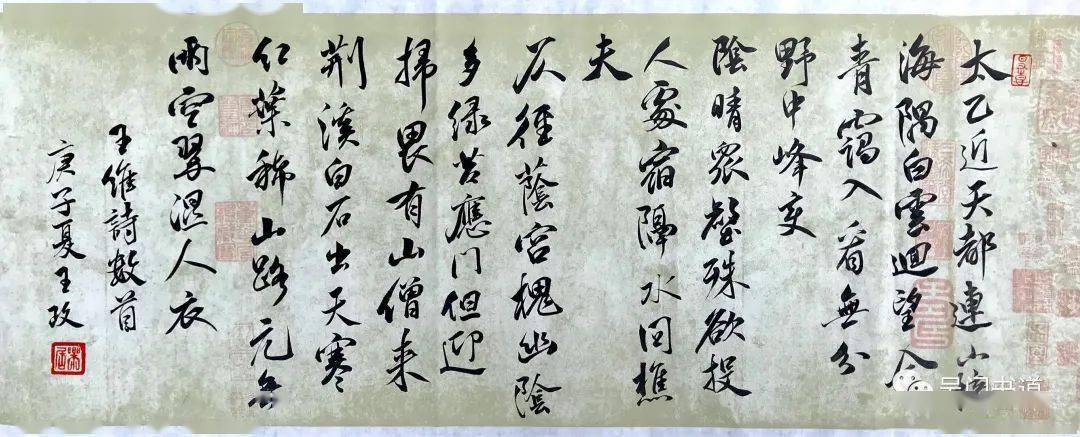 太乙近天都連山
海隅白雲迴望合
青靄入看無分
野中峰变
陰晴眾壑殊欲投
人處宿隔水问樵
夫
仄徑蔭宮槐幽陰
多绿苔應门但迎
掃畏有山僧来
荆溪白石出天寒
红葉稀山路元無
雨空翠濕人衣
王維詩數首
庚子夏王玫
书道